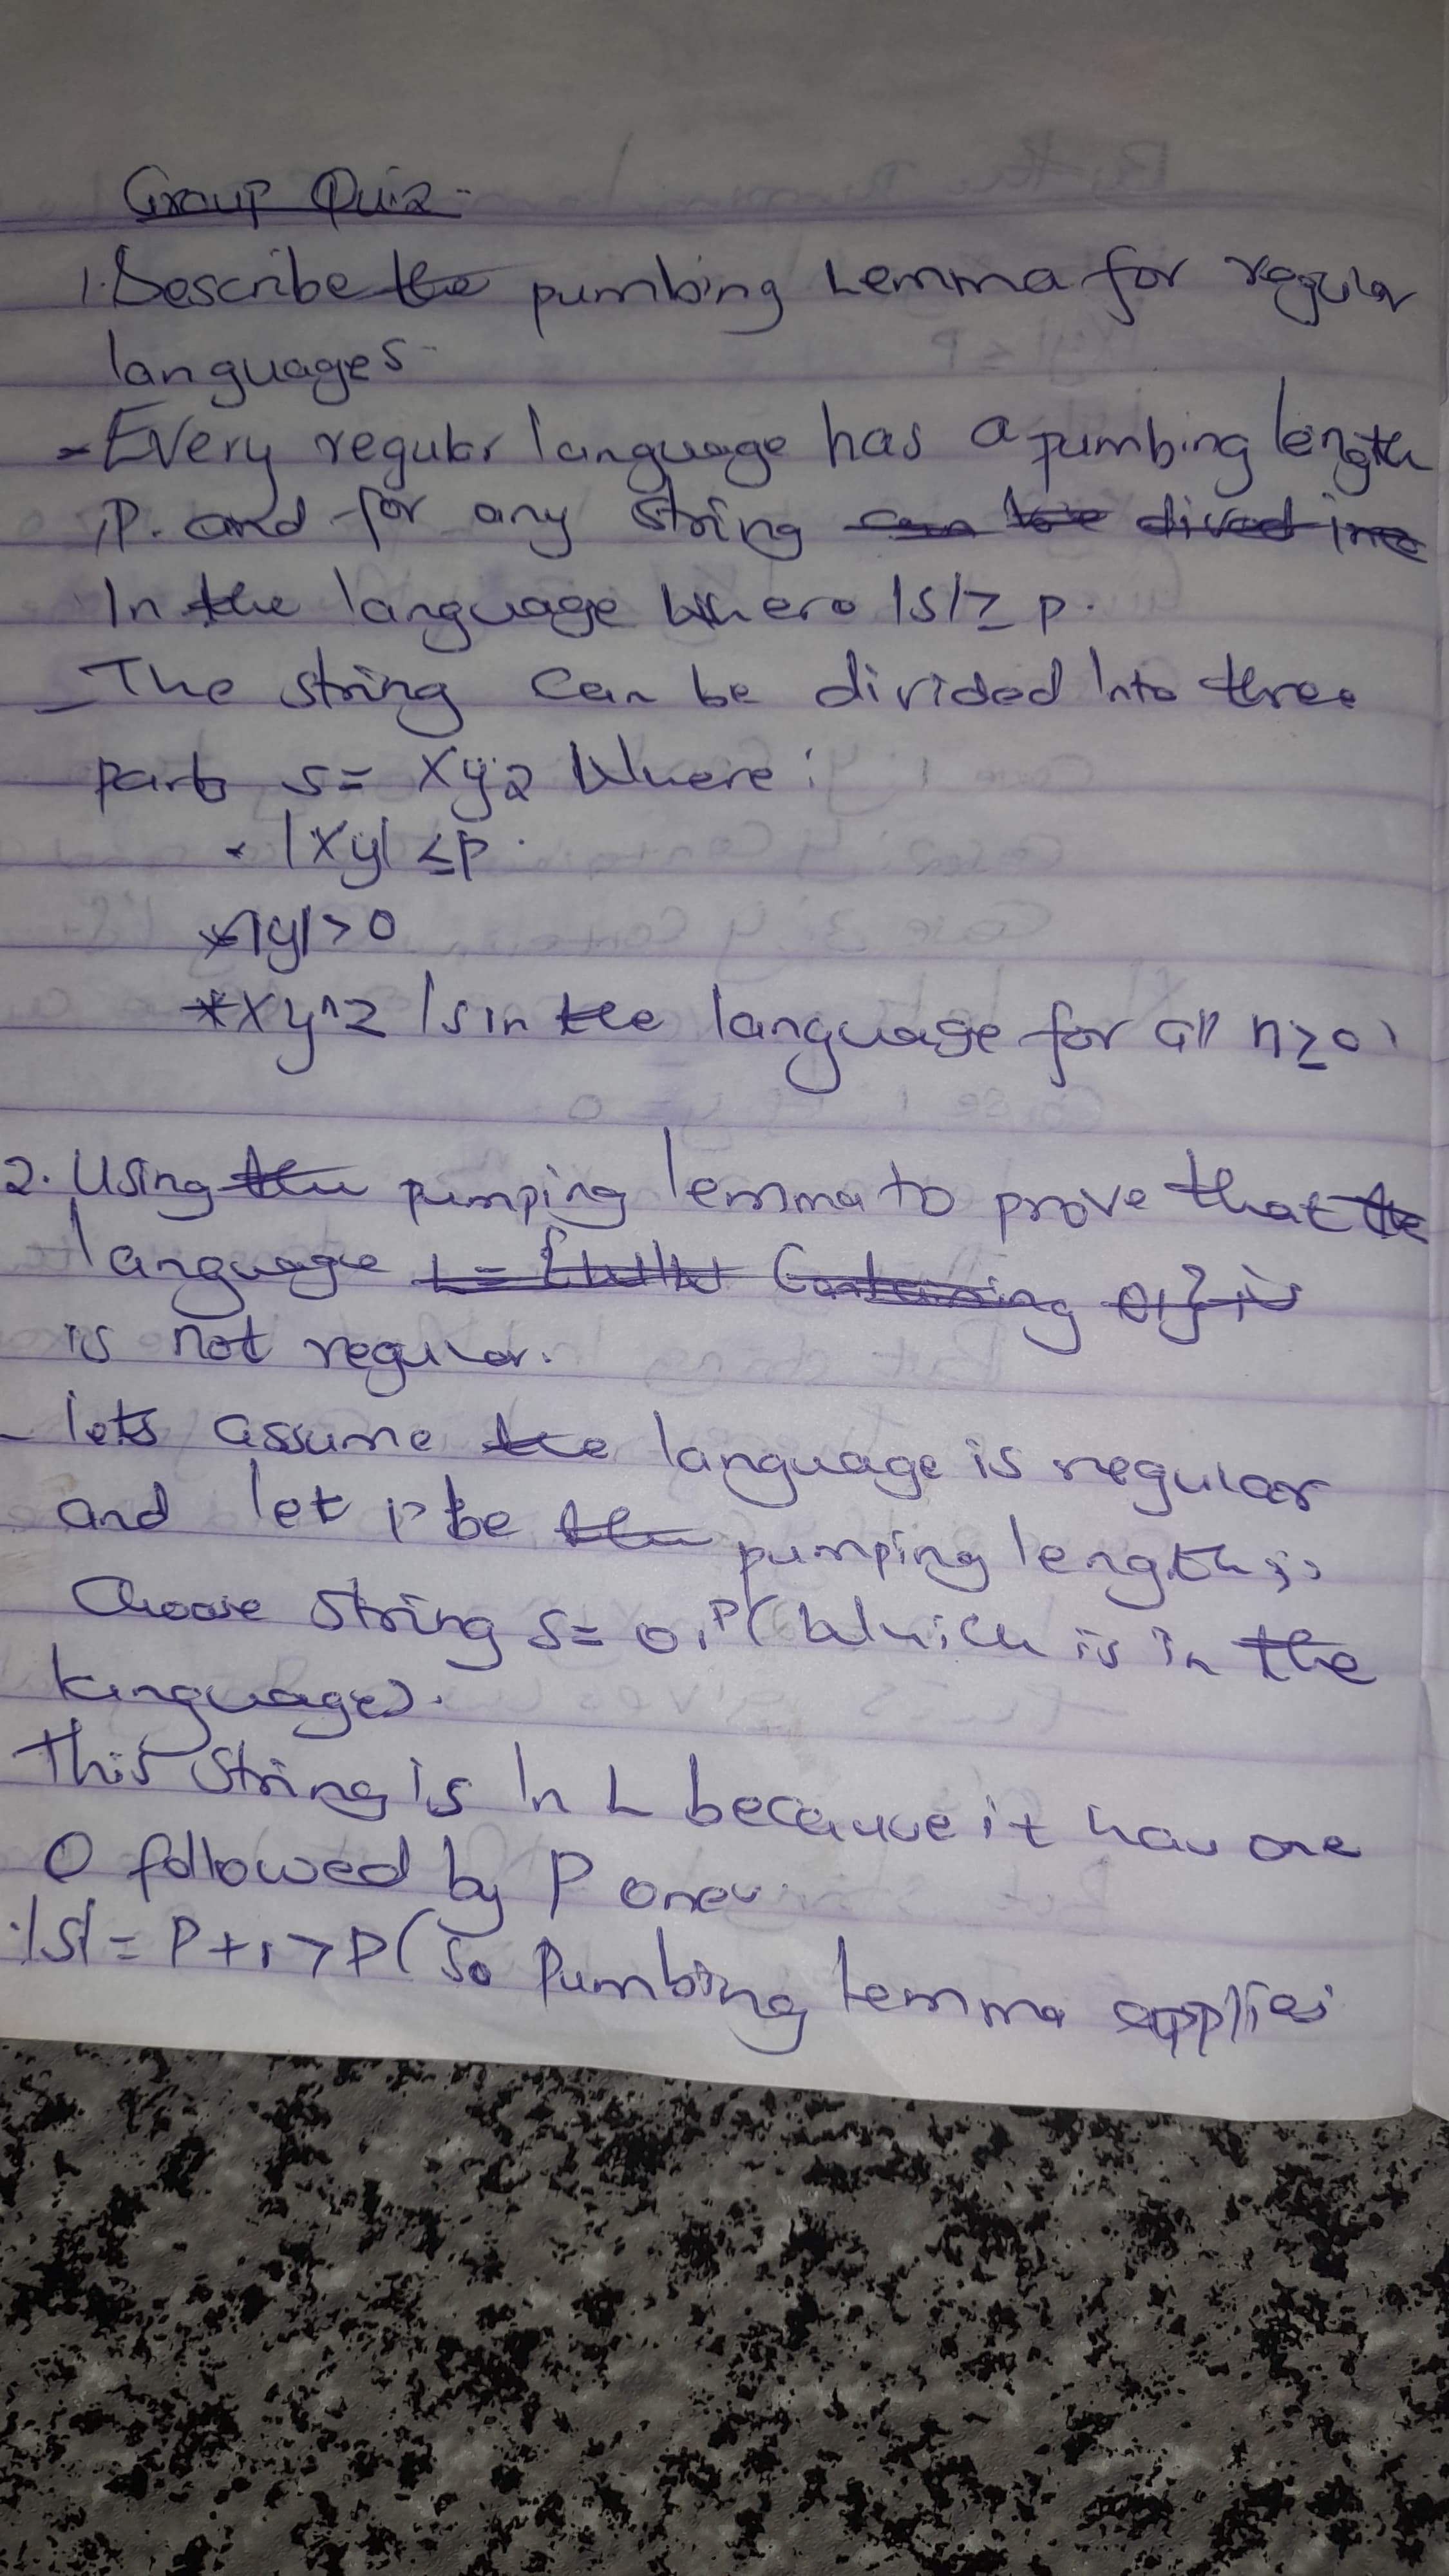 Group Quiz
1. Describe the pumbing Lemma for regular
languages
- Every regular language has a pumbing length
P. and for any string can be dived into
In the language Where |s| ≥ p.
- The string can be divided Into three
parts s = xyz Where:
. |xy| ≤ p.
* |y| > 0
* xy^z Is in the language for all n ≥ 0
2. Using the pumping lemma to prove that the
language L = {w|w Containing 01} is
is not regular.
- lets assume the language is regular
and let P be the pumping length;
Choose string s = 01^P (Which is in the
language).
This string is In L because it has one
0 followed by P ones
. |s| = P+1 > P (So Pumbing Lemma applies